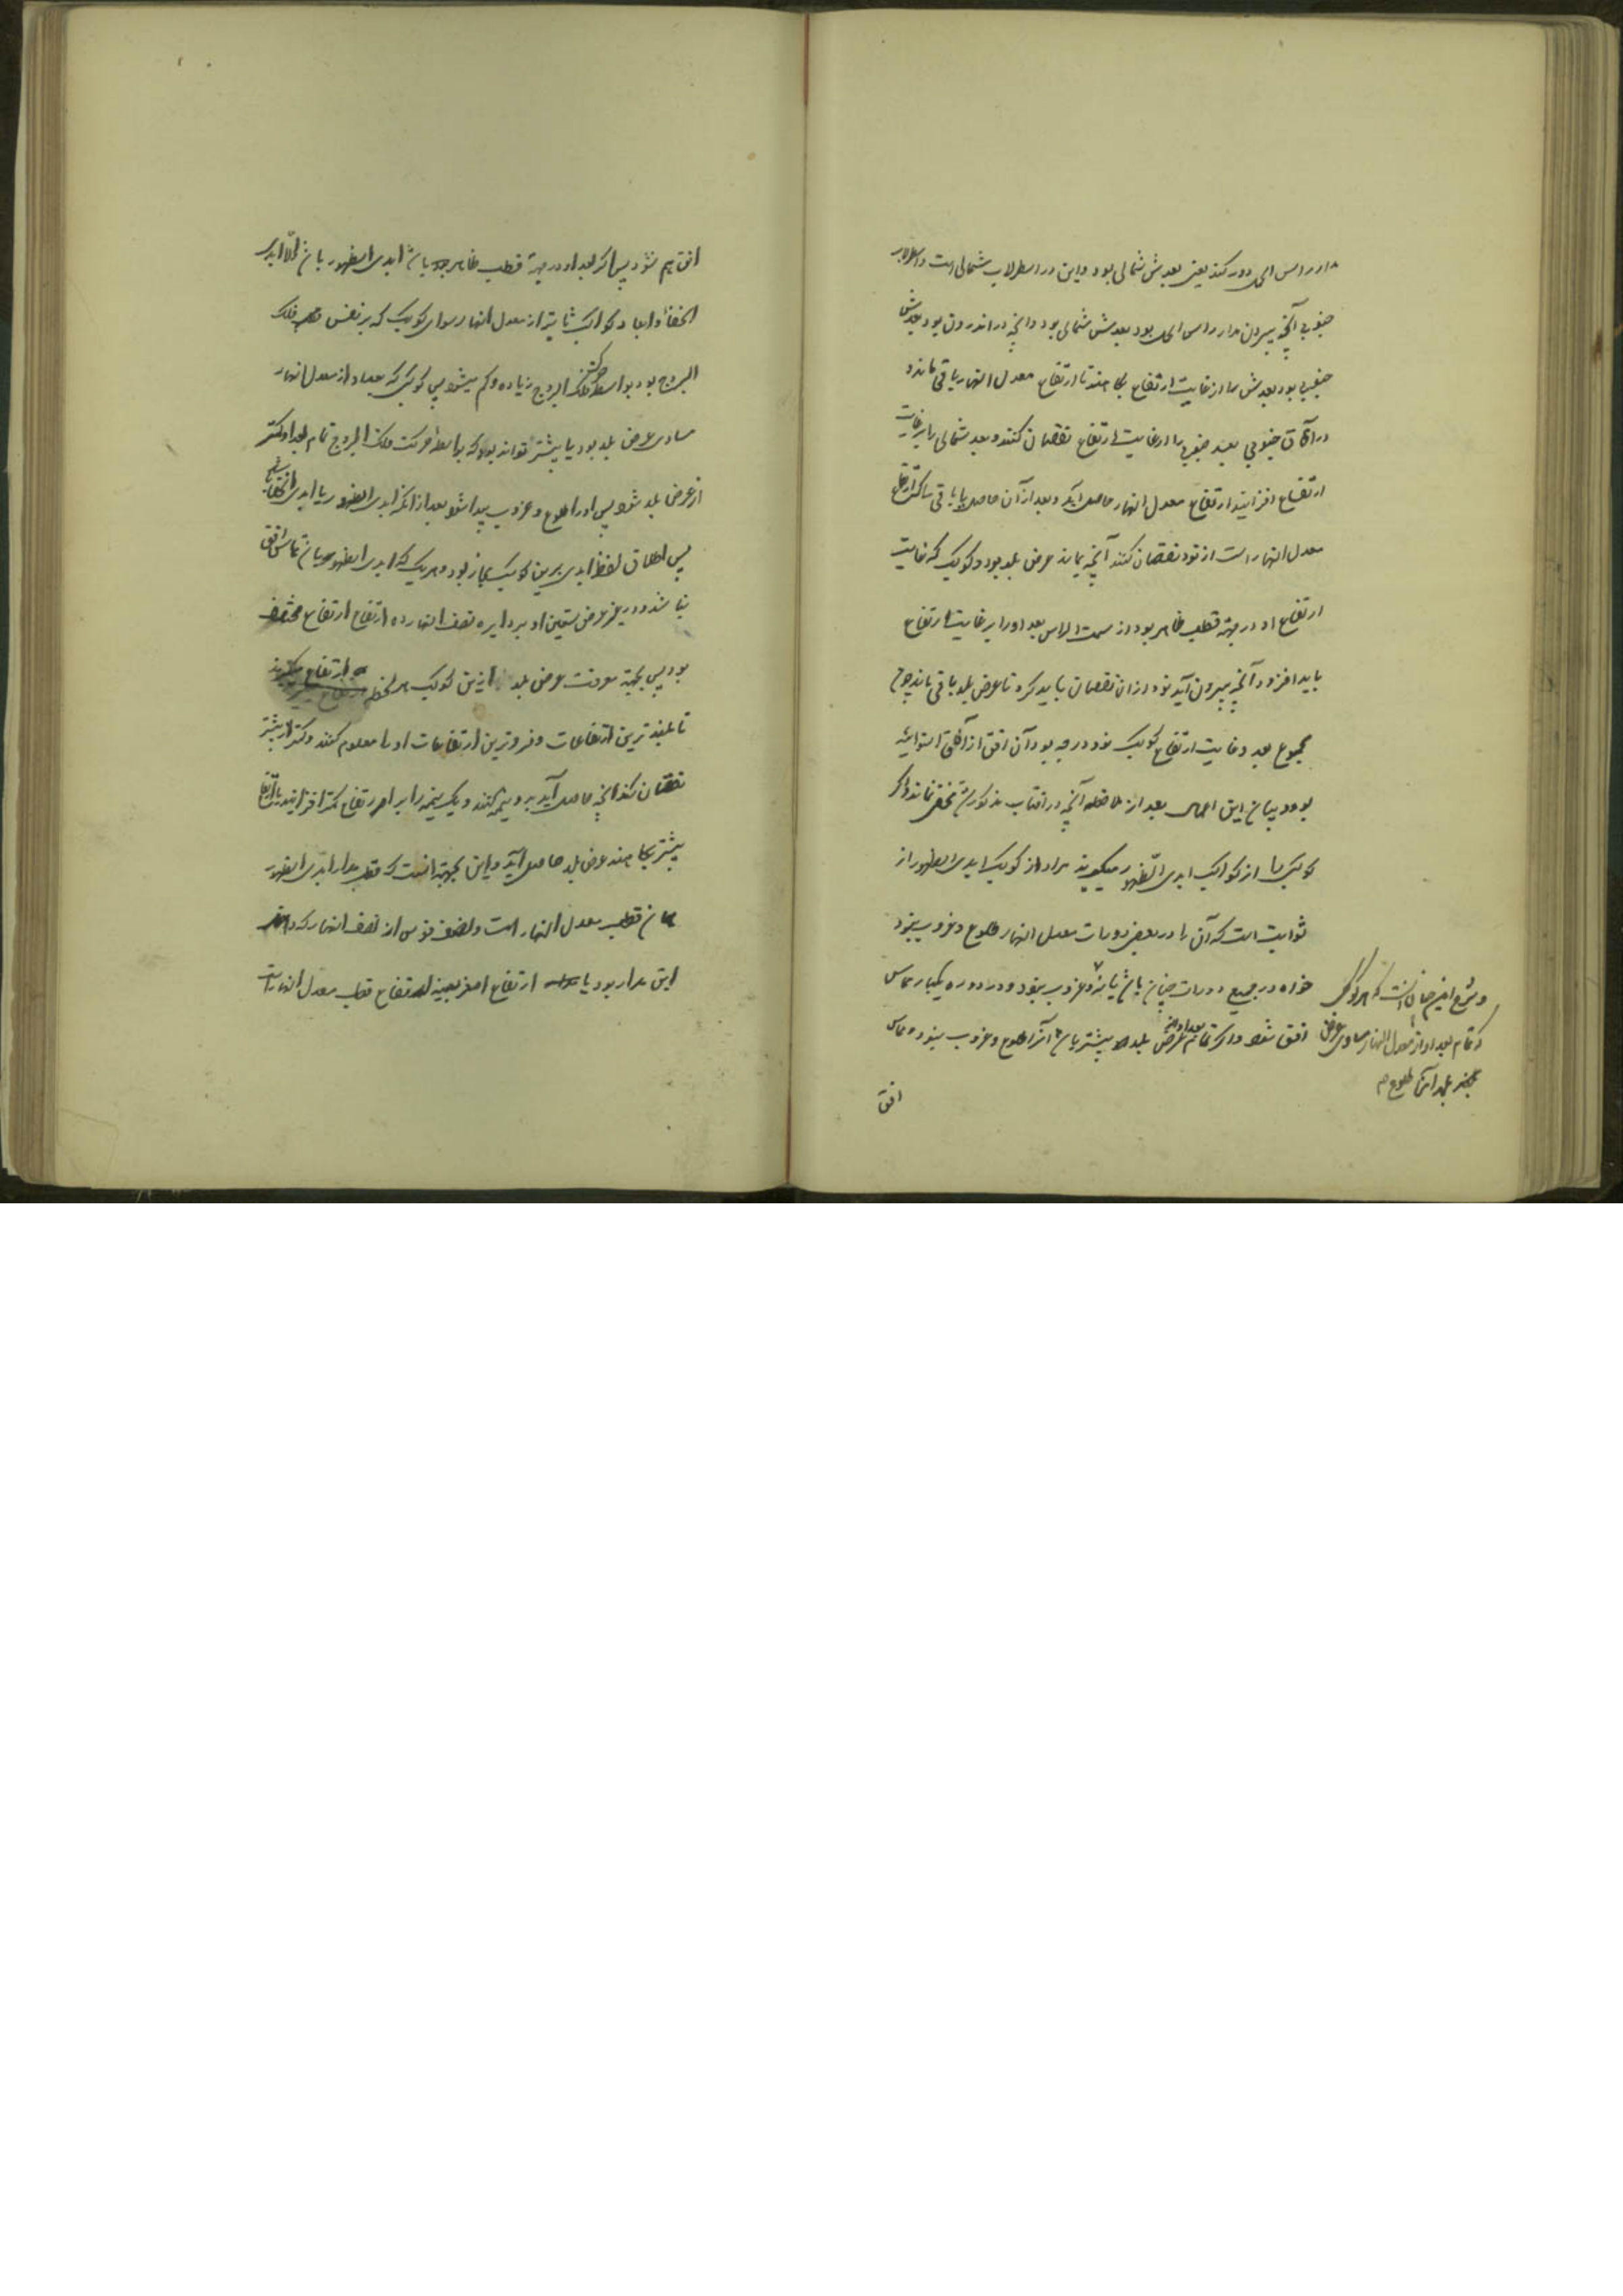 مدار راس الحمل دور کند یعنی بعدش شمالی بود و این در اسطرلاب شمالی است و در اسطرلاب
جنوبی آنچه بیرون مدار راس الحمل بود بعدش شمالی بود و آنچه در اندرون بود بعدش
جنوبی بود بعدش را از غایت ارتفاع بکاهند تا ارتفاع معدل النهار باقی ماند و
در آفاق جنوبی بعد جنوبی را از غایت ارتفاع نقصان کنند و بعد شمالی را بر غایت
ارتفاع افزایند ارتفاع معدل النهار حاصل آید و بعد از آن حاصل یا باقی را که ارتفاع
معدل النهار است از نود نقصان کنند آنچه بماند عرض بلد بود و کوکب که غایت
ارتفاع او در جهة قطب ظاهر بود از سمت الراس بعد او را بر غایت ارتفاع
باید افزود آنچه بیرون آید نود از ان نقصان باید کرد تا عرض بلد باقی ماند چه اگر
مجموع بعد و غایت ارتفاع کوکب نود درجه بود آن افق از آفاق استوائیه
بود و بیان این اعمال بعد از ملاحظه آنچه در آفتاب مذکور شد مخفی نماند و اگر
کوکب را از کواکب ابدی الظهور میگویند مراد از کوکب ابدی الظهور از
ثوابت است که آن را در بعضی دورات معدل النهار طلوع و غروب نبود
خواه در جمیع دورات چنان باشد یا نه و غروب نبود و در هر دوره یکبار مماس
افق شود و اگر تمام بعد او از عرض بلد بیشتر باشد آنرا طلوع و غروب نبود و مماس
و شرح این چنان است که هر کوکبی
که تمام بعد او از معدل النهار مساوی عرض
بلد آنرا طلوع
افق
افق هم نشود پس اگر بعد او در جهة قطب ظاهر بود یا شد ابدی الظهور باشد والا ابدی
الخفا و ابعاد کواکب ثابته از معدل النهار سوای کوکب که بر نفس قطب فلک
البروج بود بواسطه حرکت فلک البروج زیاده و کم میشود پس کوکبی که بعد او از معدل النهار
مساوی عرض بلد بود یا بیشتر تواند بود که بواسطه حرکت فلک البروج تمام بعد او کمتر
از عرض بلد شود پس او را طلوع و غروب پیدا شود بعد از آنکه ابدی الظهور یا ابدی الخفا باشد
پس اطلاق لفظ ابدی برین کوکب مجاز بود و هر یک که ابدی الظهور باشد مماس افق
نباشد و در غیر عرض تسعین او بر دایره نصف النهار دو ارتفاع ارتفاع مختلف
بود پس بجهة معرفت عرض بلد ازین کوکب هر لحظه ارتفاع میگیرند
تا بلند ترین ارتفاعات و فروترین ارتفاعات او را معلوم کنند و کمتر از بیشتر
نقصان کنند آنچه حاصل آید بدو نیمه کنند و یک نیمه را بر ارتفاع کمتر افزایند یا از ارتفاع
بیشتر بکاهند عرض بلد حاصل آید و این بجهة آنست که قطب مدار ابدی الظهور
همان قطب معدل النهار است و نصف قوس از نصف النهار که در
این مدار بود با ارتفاع اصغر بعینه ارتفاع قطب معدل النهار است